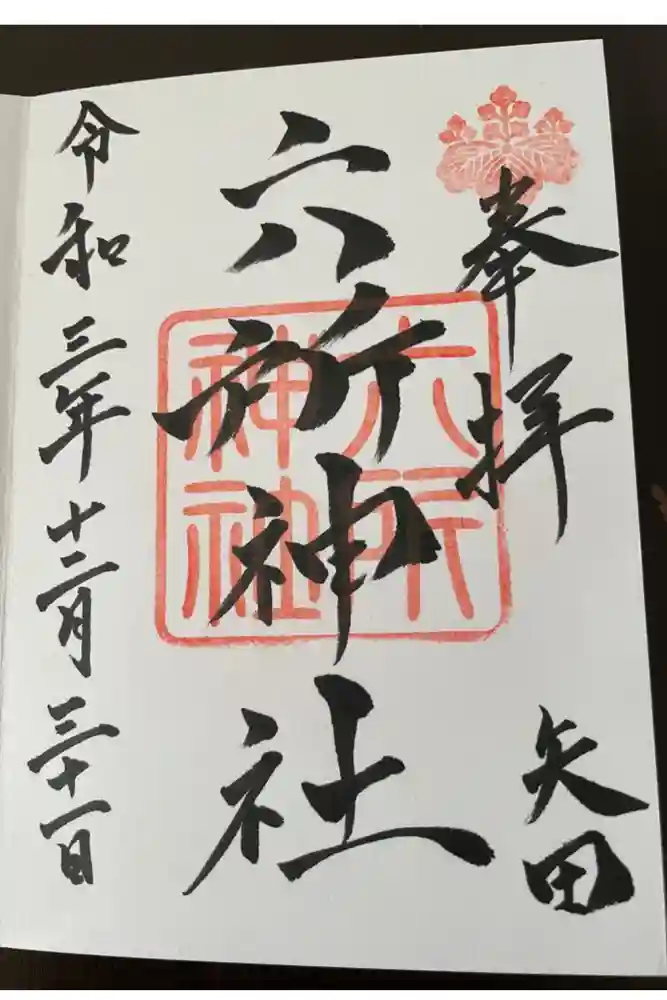 奉拝
矢田
六所神社
六所
神社
令和三年十二月三十一日